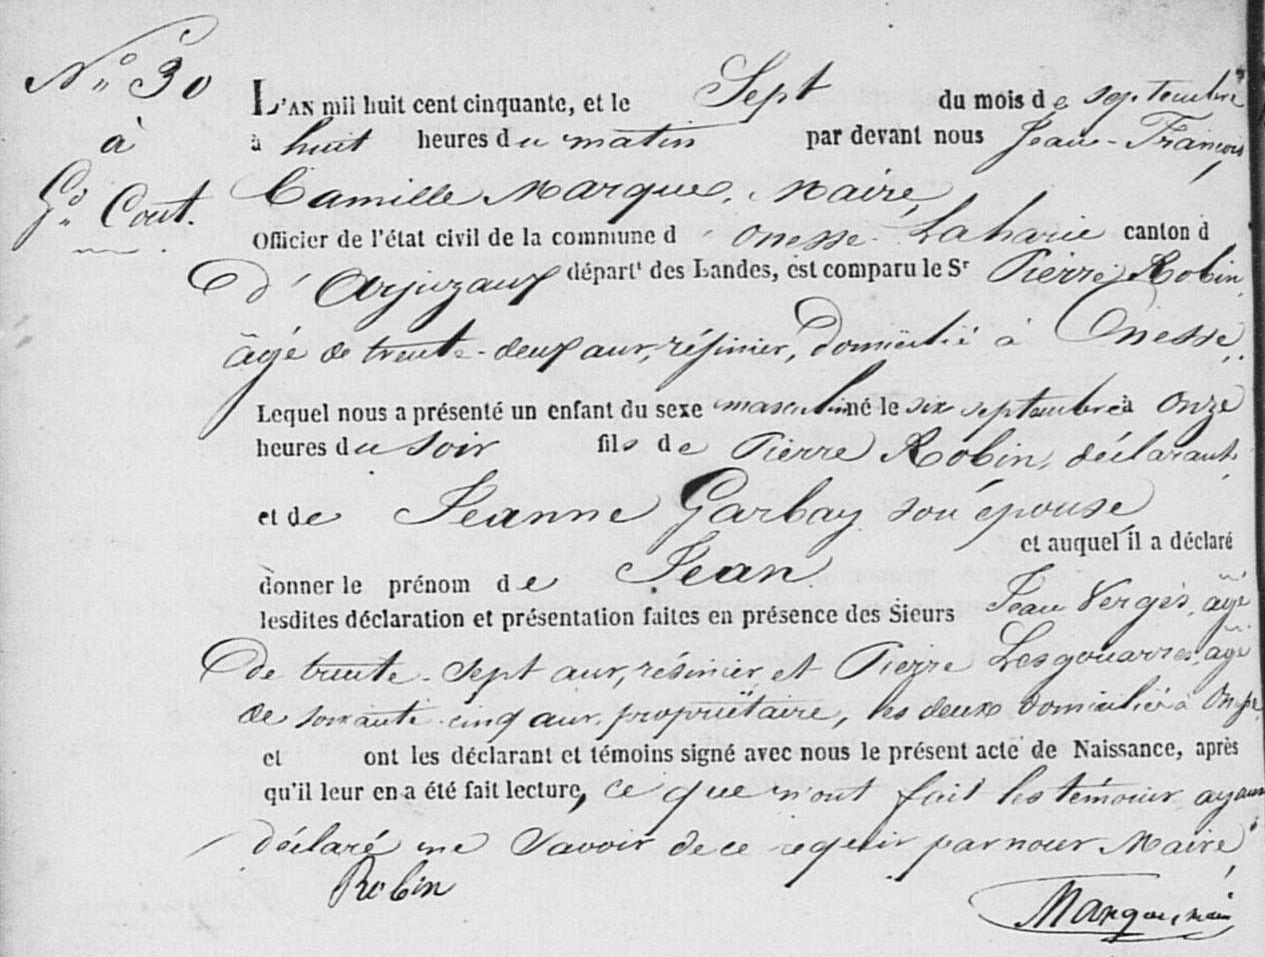 N° 30
à
Gd Cout.
L'AN mil huit cent cinquante, et le Sept du mois de septembre
à huit heures du matin par devant nous Jean-François
Camille Marques, Maire,
Officier de l'état civil de la commune d'Onesse-Laharie canton d
d'Arjuzaux départt des Landes, est comparu le Sr Pierre Robin,
âgé de trente-deux ans, résinier, domicilié à Onesse,
Lequel nous a présenté un enfant du sexe masculin né le six septembre à onze
heures du soir fils de Pierre Robin, déclarant,
et de Jeanne Garbay son épouse
et auquel il a déclaré
donner le prénom de Jean
lesdites déclaration et présentation faites en présence des Sieurs Jean Vergès, âgé
de trente-sept ans, résinier, et Pierre Lesgouarres, âgé
de soixante-cinq ans, propriétaire, les deux domiciliés à Onesse,
et ont les déclarant et témoins signé avec nous le présent acte de Naissance, après
qu'il leur en a été fait lecture, ce que n'ont fait les témoins ayant
déclaré ne savoir de ce requis par nous Maire
Robin
Marques, maire